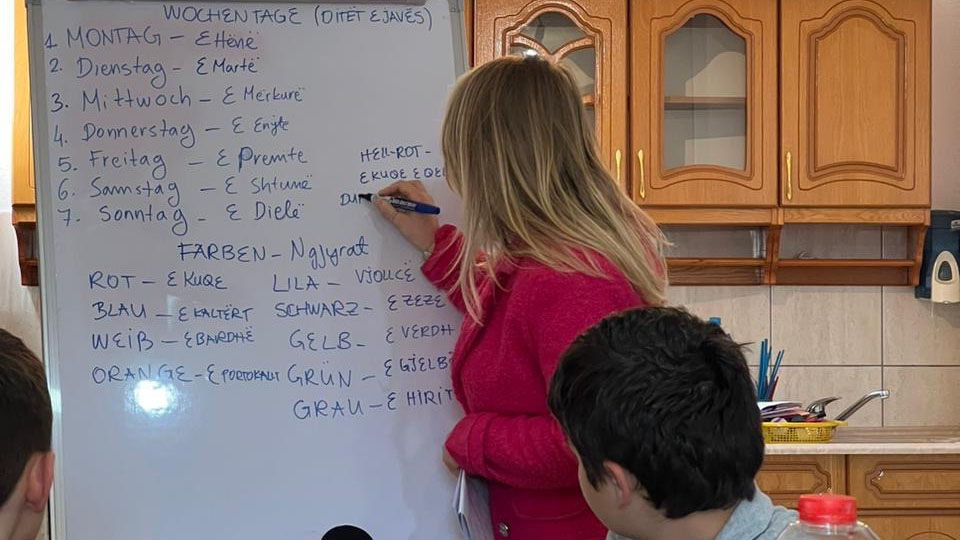 WOCHENTAGE (DITËT E JAVËS)
1. MONTAG – E Hënë
2. Dienstag – E Martë
3. Mittwoch – E Mërkurë
4. Donnerstag – E Enjte
5. Freitag – E Premte
6. Samstag – E Shtunë
7. Sonntag – E Dielë
HELL-ROT –
E KUQE E
DU
FARBEN – Ngjyrat
ROT – E KUQE LILA – VJOLLCË
BLAU – E KALTËRT SCHWARZ – E ZEZE
WEIß – E BARDHË GELB – E VERDH
ORANGE – E PORTOKALLT GRÜN – E GJELB
GRAU – E HIRIT